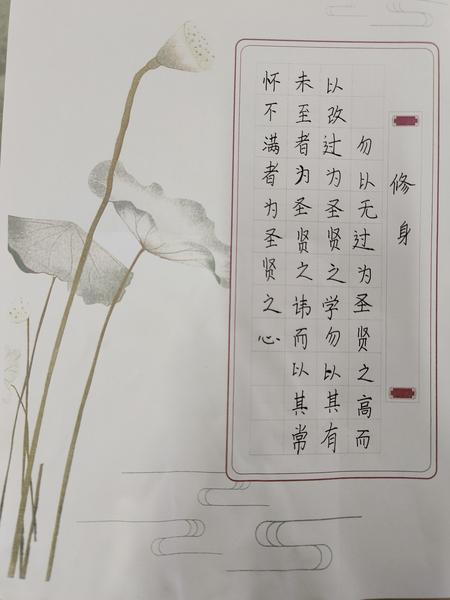 修身
勿以无过为圣贤之高而
以改过为圣贤之学勿以其有
未至者为圣贤之讳而以其常
怀不满者为圣贤之心